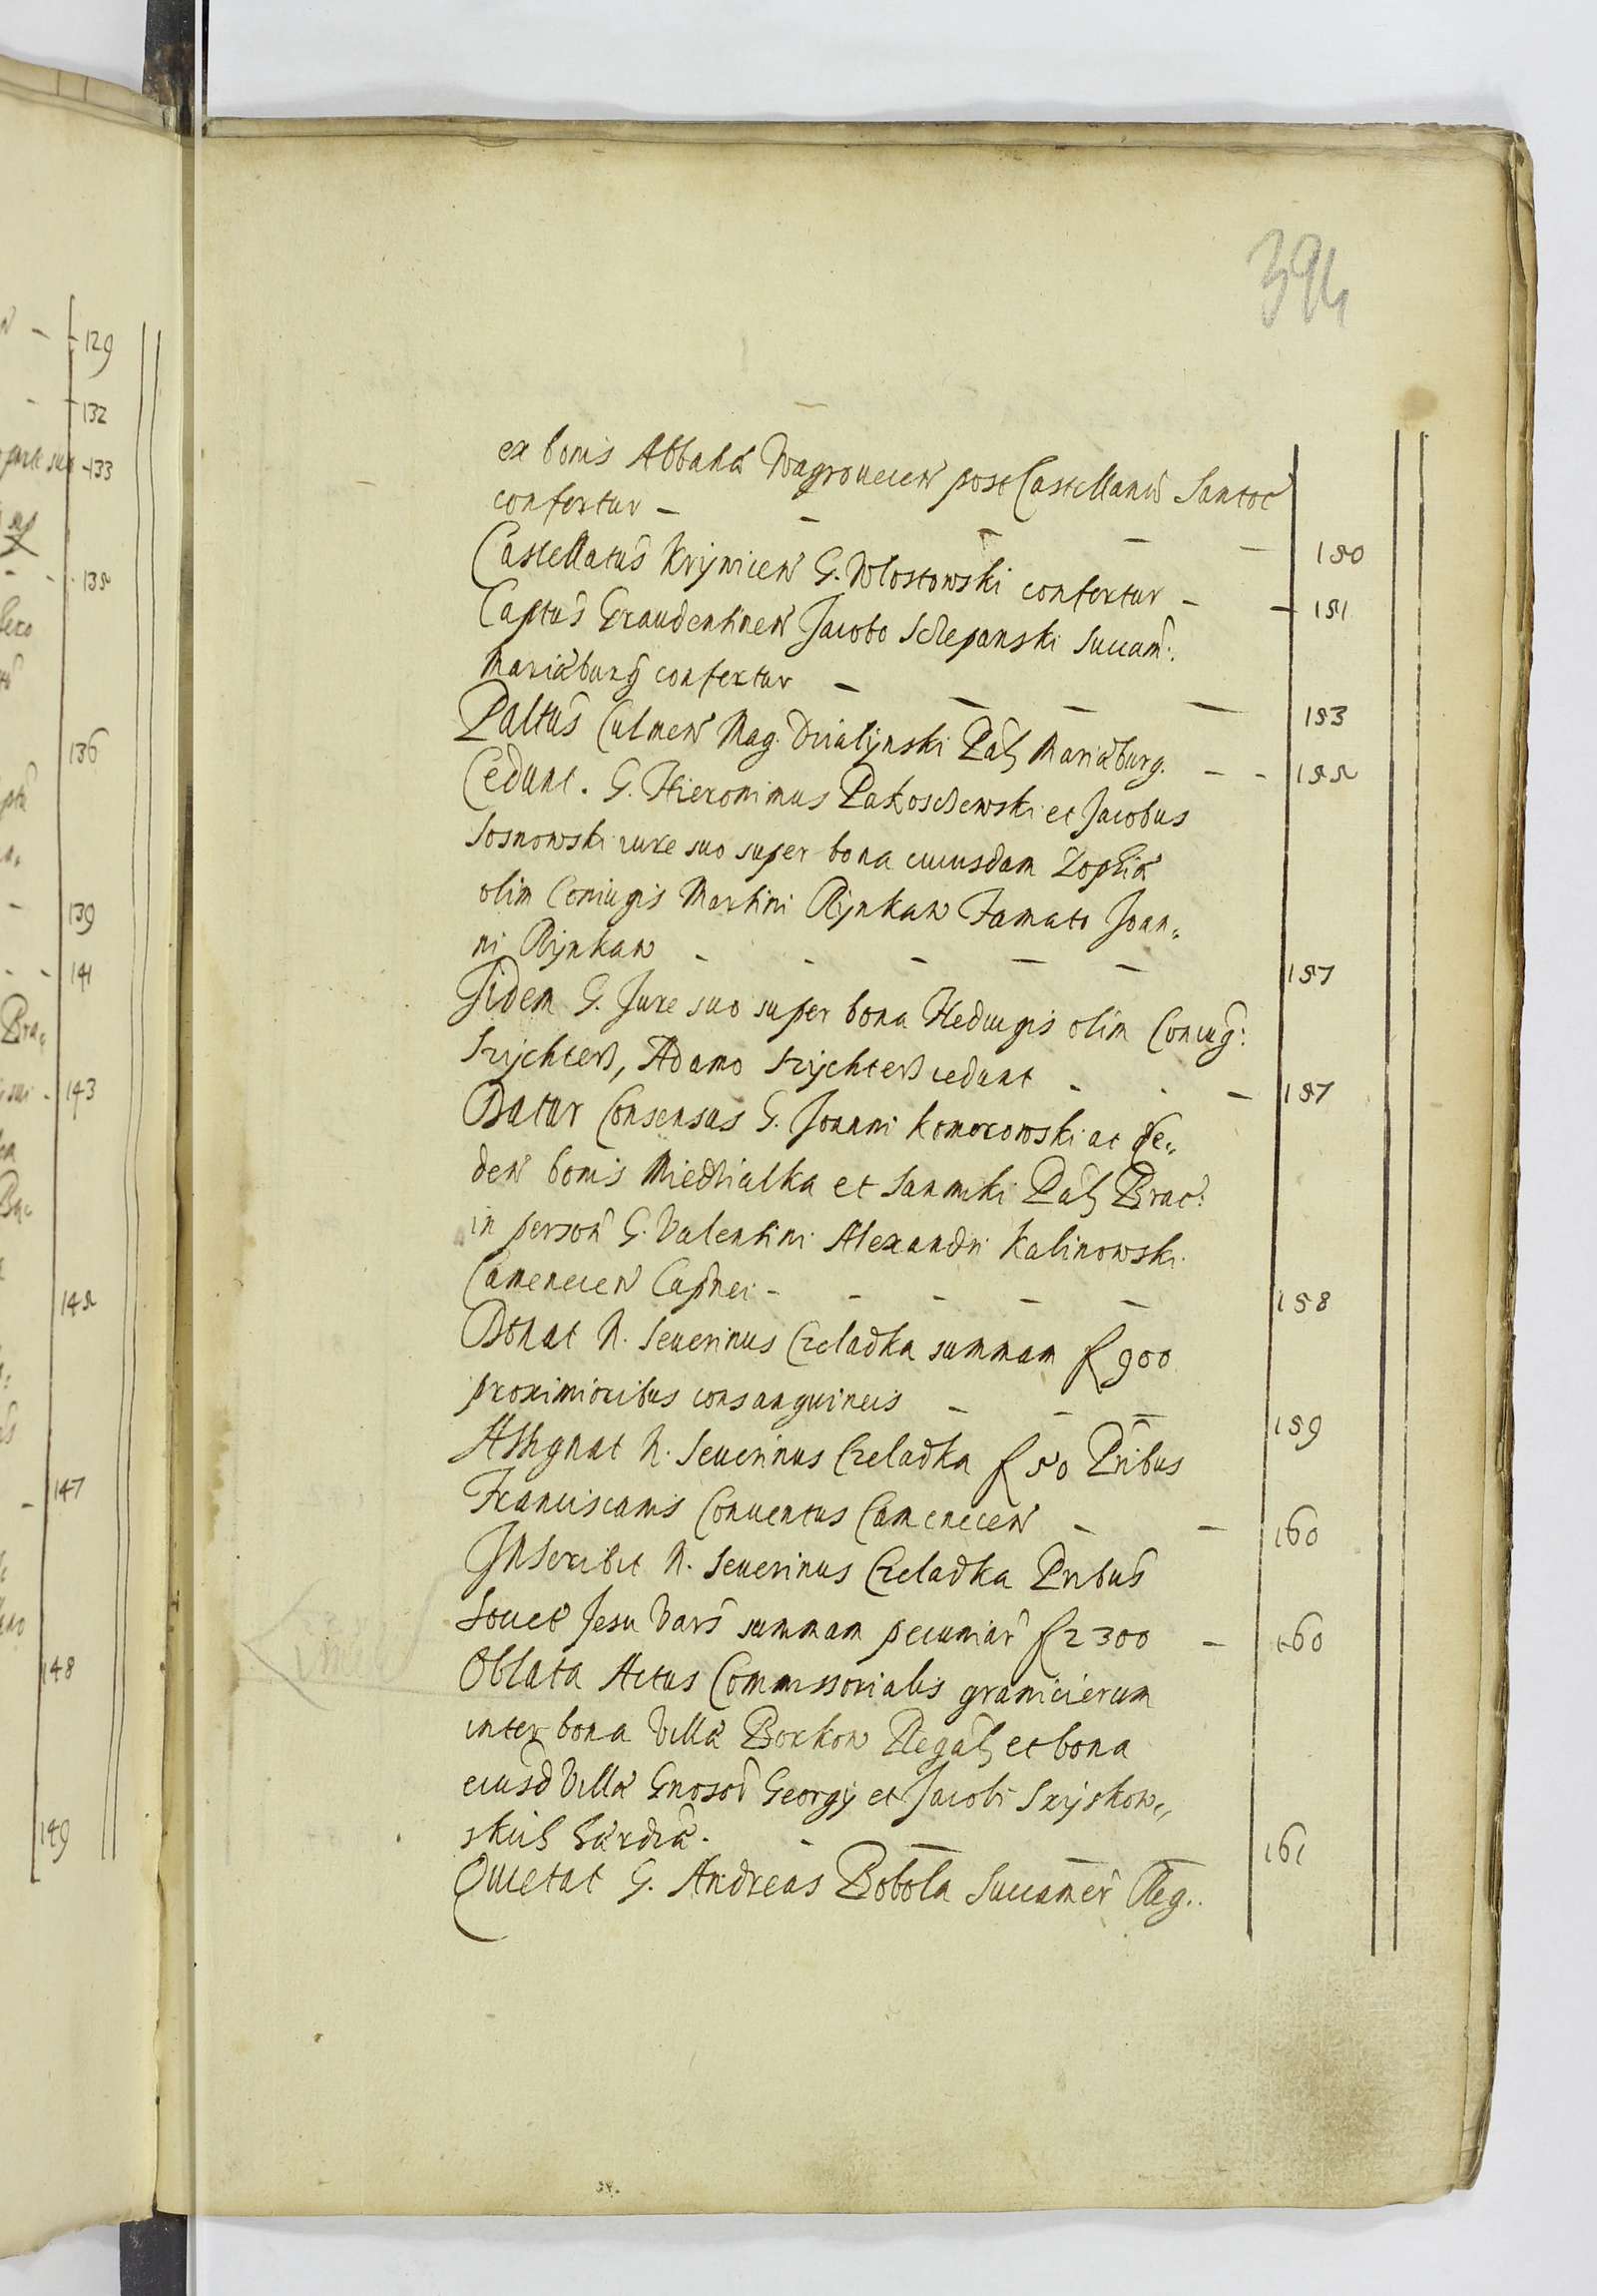 394
ex bonis Abbatiæ Wagrouecen post Castellanū Santoc
confertur - - - - - 150
Castellatus Krijwicen G. Wlostowski confertur - - 151
Captus Graudentinen Jacobo Sczepanski Succam:
Mariæburg confertur - - - - 153
Paltus Culmen Mag. Dzialijnski Pal Mariæburg. - - 155
Cedunt. G. Hieronimus Pakosczewski et Jacobus
Sosnowski iure suo super bona cuiusdam Zophiæ
olim Coniugis Martini Rijnkaw Famato Joan„
ni Rijnkaw - - - - - 157
Jidem G. Jure suo super bona Heduigis olim Coniug:
Szijchters, Adamo Szijchters cedunt - - - 157
Datur Consensus G. Joanni Komorowski ac ce„
den bonis Miedzialka et Sanniki Pal Brac:
in person G. Valentini Alexandri Kalinowski
Camenecen Capnei - - - - - 158
Donat N. Seuerinus Czeladka summam f 900
proximioribus consanguineis - - - 159
Assignat N. Seuerinus Czeladka f 50 Pribus
Franciscanis Conuentus Camenecen - - 160
Inscribit N. Seuerinus Czeladka Pribus
Societ Jesu Vars summam pecuniar f 2300 - 160
Oblata Actus Commissorialis granicierum
inter bona Villæ Borkow Regal et bona
eiusd Villæ Gnosod Georgij et Jacobi Szijskow„
skich hærdiæ. - - - - 161
Quietat G. Andreas Bobola Succamer Reg..
129
132
133
135
136
139
141
143
145
147
148
149